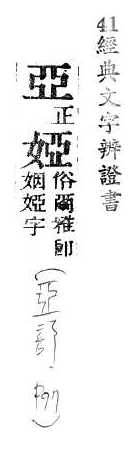 41經典文字辨證書
亞正婭俗爾雅卽
姻婭字
(亞部